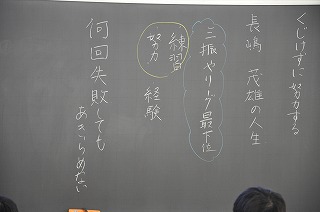 くじけずに努力する
長嶋 茂雄の人生
三振やリーグ最下位
練習
努力
経験
何回失敗しても
あきらめない